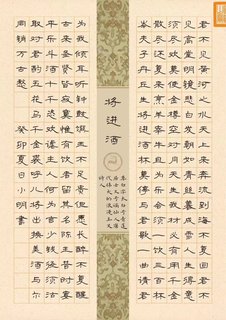 君不见黄河之水天上来奔流到海不复回君不
见高堂明镜悲白发朝如青丝暮成雪人生得意
须尽欢莫使金樽空对月天生我材必有用千金
散尽还复来烹羊宰牛且为乐会须一饮三百杯
岑夫子丹丘生将进酒杯莫停与君歌一曲请君
将进酒
李白字太白号青莲
居士又号谪仙人唐
代伟大的浪漫主义
诗人
为我倾耳听钟鼓馔玉不足贵但愿长醉不复醒
古来圣贤皆寂寞惟有饮者留其名陈王昔时宴
平乐斗酒十千恣欢谑主人何为言少钱径须沽
取对君酌五花马千金裘呼儿将出换美酒与尔
同销万古愁 癸卯夏日小明书